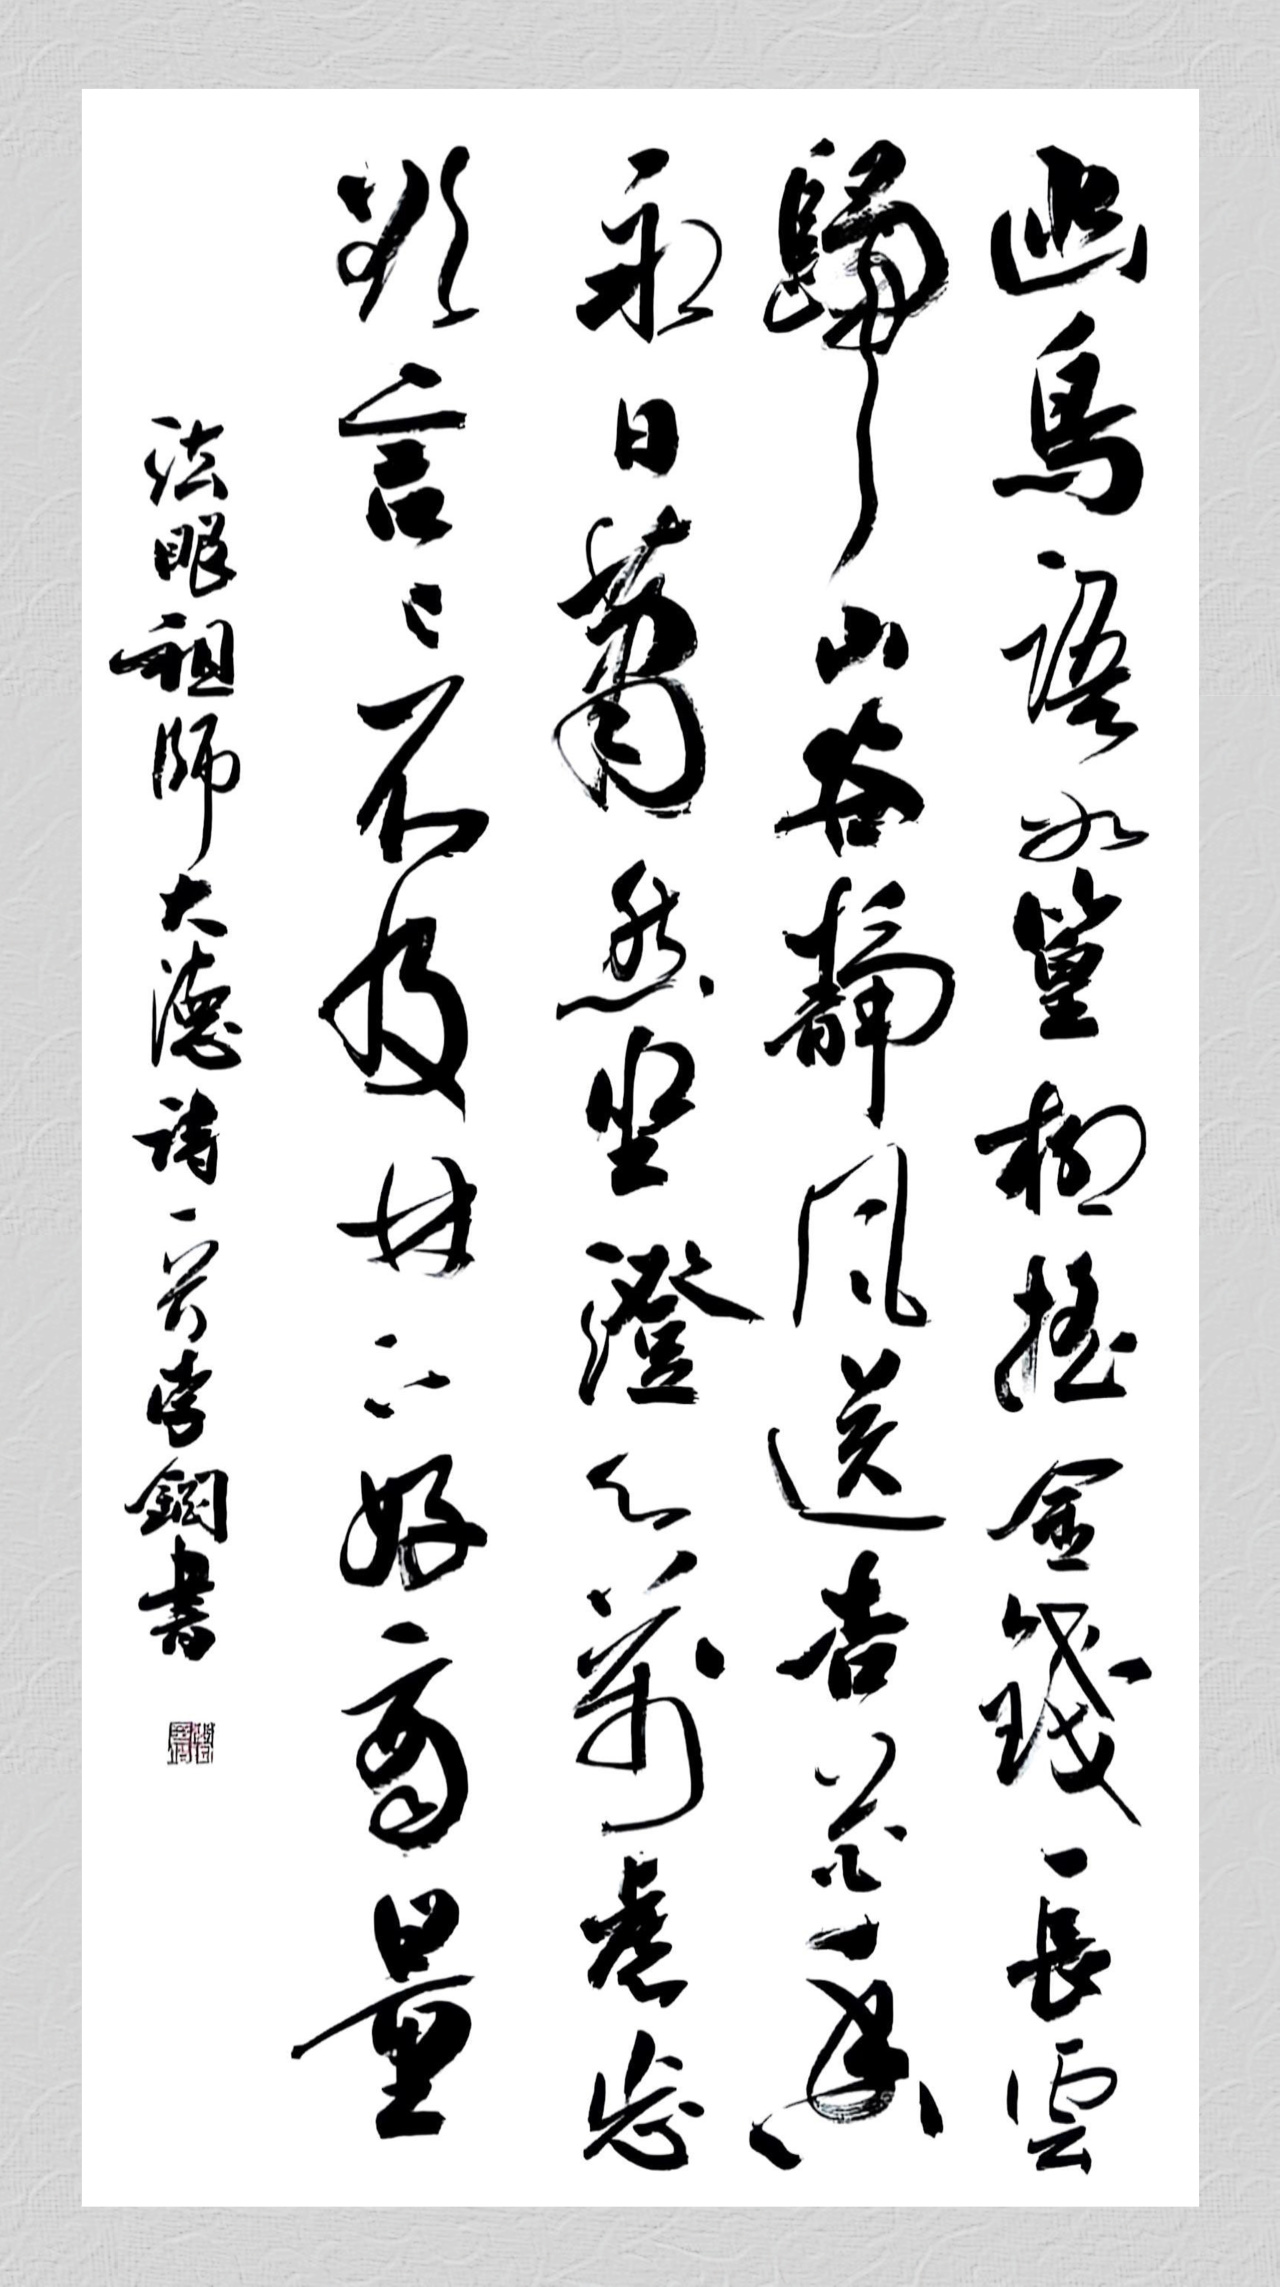 幽鳥語如篁柳搖金綫長雲
歸山谷靜風送杏花香
永日蕭然坐澄心萬慮忘
欲言々不及林下好商量
法眼祖師大德詩一首李鋼書